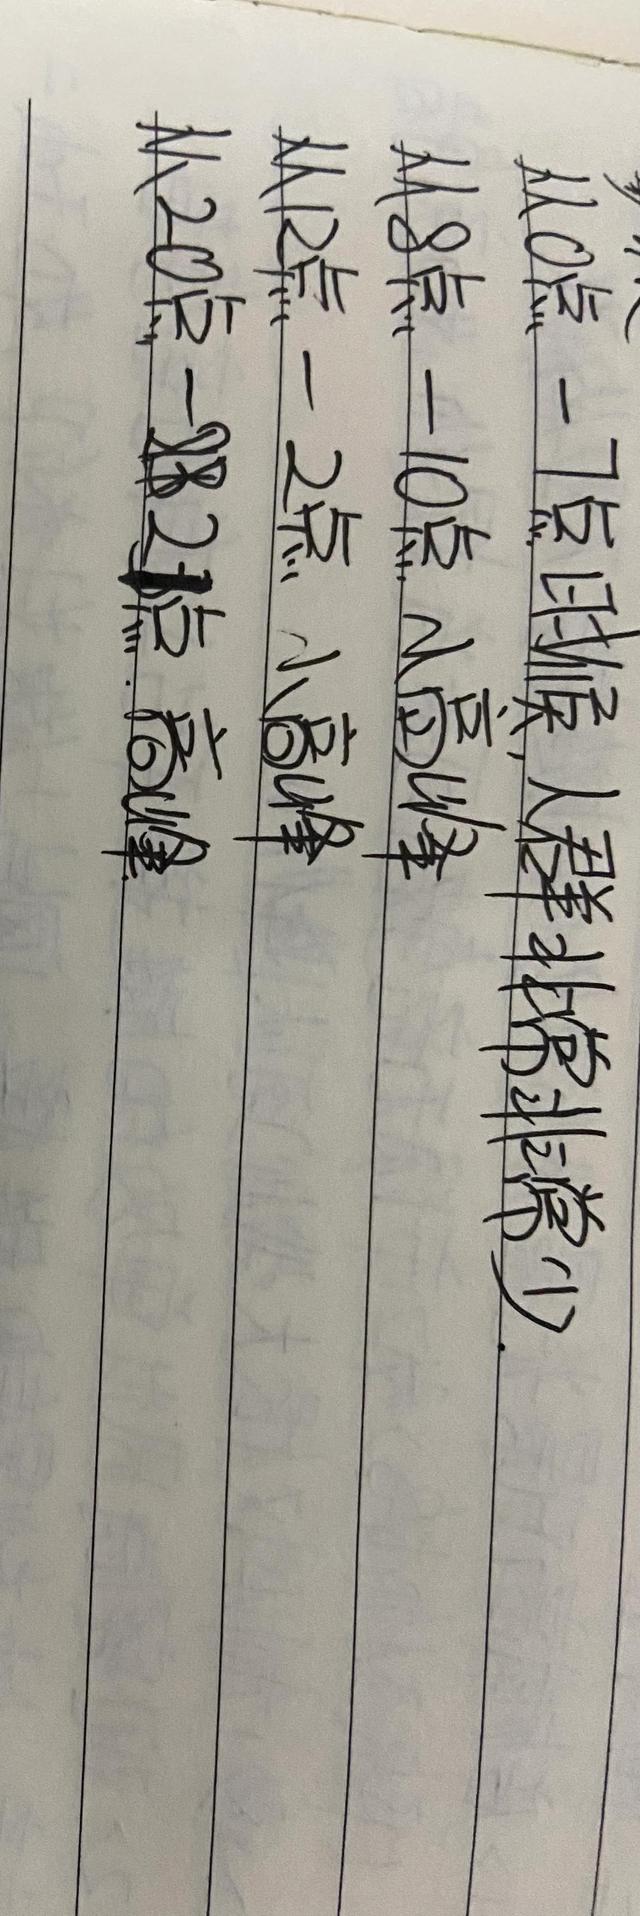 从0点-7点时候，人群非常非常少.
从8点-10点 小高峰
从12点-2点 小高峰
从20点-21点.高峰.